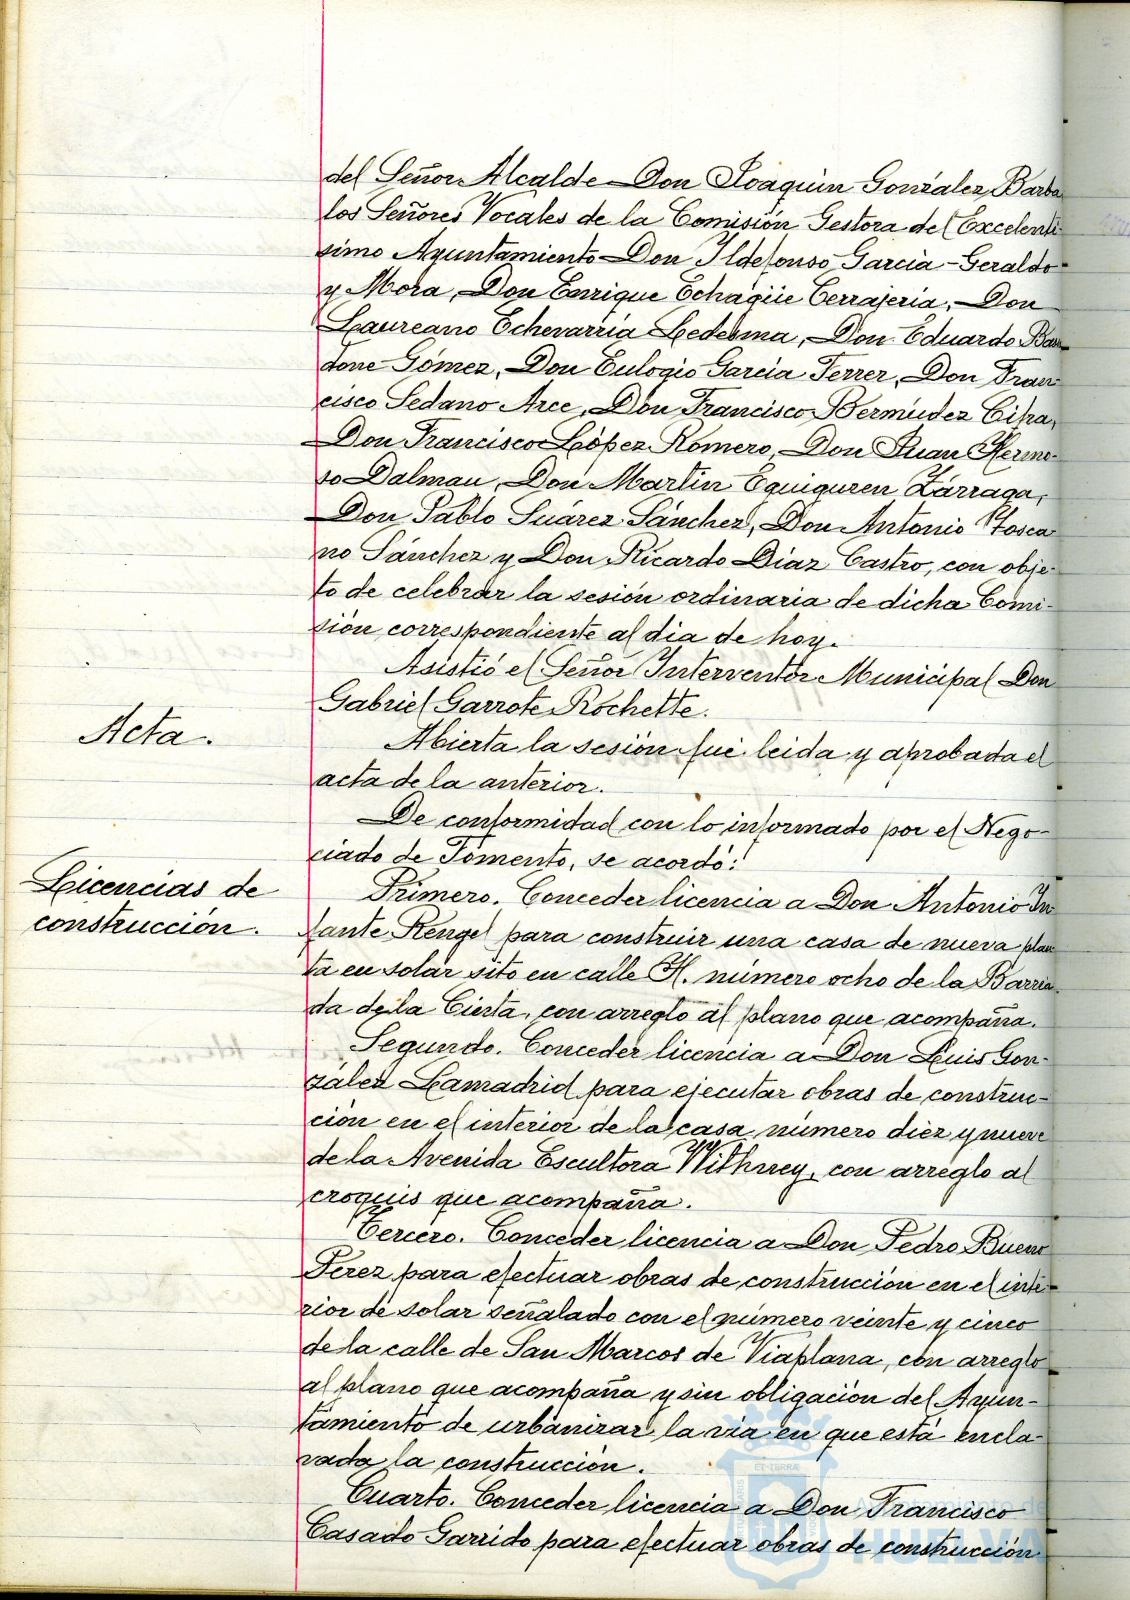 del Señor Alcalde Don Joaquin González Barba
los Señores Vocales de la Comisión Gestora del Excelentí-
simo Ayuntamiento Don Ildefonso Garcia-Geraldo
y Mora, Don Enrique Echagüie Cerrajeria, Don
Laureano Echevarria Ledesma, Don Eduardo
done Gómez, Don Eulogio Garcia Ferrer, Don Fran-
cisco Sedano Arce, Don Francisco Bermúdez
Don Francisco López Romero, Don Juan Hermo-
so Dalmau, Don Martin Eguiguren Zárraga,
Don Pablo Suárez Sánchez, Don Antonio Tosca
no Sánchez y Don Ricardo Diaz Castro, con obje-
to de celebrar la sesión ordinaria de dicha Comi-
sión correspondiente al dia de hoy.
Asistió el Señor Interventor Municipal Don
Gabriel Garrote Rochette.
Acta.
Abierta la sesión fué leida y aprobada el
acta de la anterior.
De conformidad con lo informado por el Nego-
ciado de Fomento, se acordó:
Licencias de
construcción.
Primero. Conceder licencia a Don Antonio In
fante Rengel para construir una casa de nueva plan
ta en solar sito en calle H. número ocho de la Barria
da de la Cinta, con arreglo al plano que acompaña.
Segundo. Conceder licencia a Don Luis Gon-
zález Lamadrid para ejecutar obras de construc-
ción en el interior de la casa número diez y nueve
de la Avenida Escultora Withney, con arreglo al
croquis que acompaña.
Tercero. Conceder licencia a Don Pedro Bueno
Pérez para efectuar obras de construcción en el inte-
rior de solar señalado con el número veinte y cinco
de la calle de San Marcos de Viaplana, con arreglo
al plano que acompaña y sin obligación del Ayun-
tamiento de urbanizar la via en que está encla-
vada la construcción.
Cuarto. Conceder licencia a Don Francisco
Casado Garrido para efectuar obras de construcción
Ayuntamiento de
HUELVA